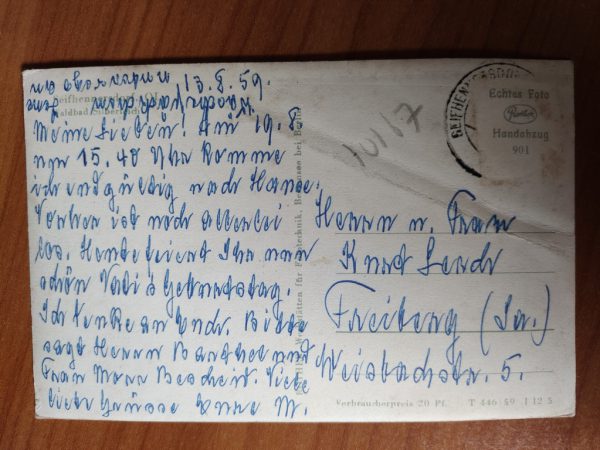 13.8.59.
Seifhennersdorf OL
Waldbad Silberteich
Meine Lieben! Am 19.8.
um 15.40 Uhr komme
ich endgültig nach Hause.
Vorher ist noch allerlei
los. Heute feiert Ihr nun
schön Vatis Geburtstag.
Ich denke an Euch. Bitte
sagt Herrn Barthel und
Frau Mann Bescheid. Viele
liebe Grüsse Eure M.
für Fototechnik,
bei Berlin
Echtes Foto
Handabzug
901
Herrn u. Frau
Kurt
Freiberg (Sa.)
Weisbachstr. 5.
Verbraucherpreis 20 Pf. T 446 59 I 12 5